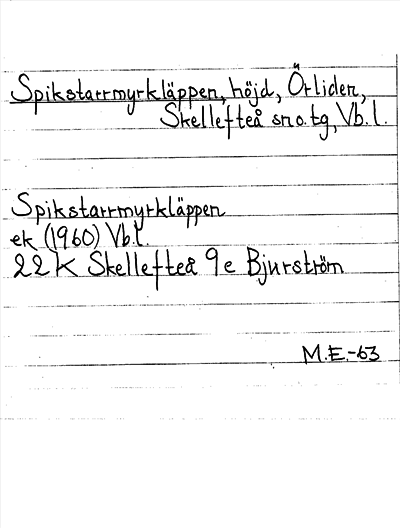 Spikstarrmyrkläppen, höjd, Örliden,
Skellefteå sn o. tg, Vb. l.
Spikstarrmyrkläppen
ek (1960) Vb.l.
22 K Skellefteå 9e Bjurström
M.E.-63